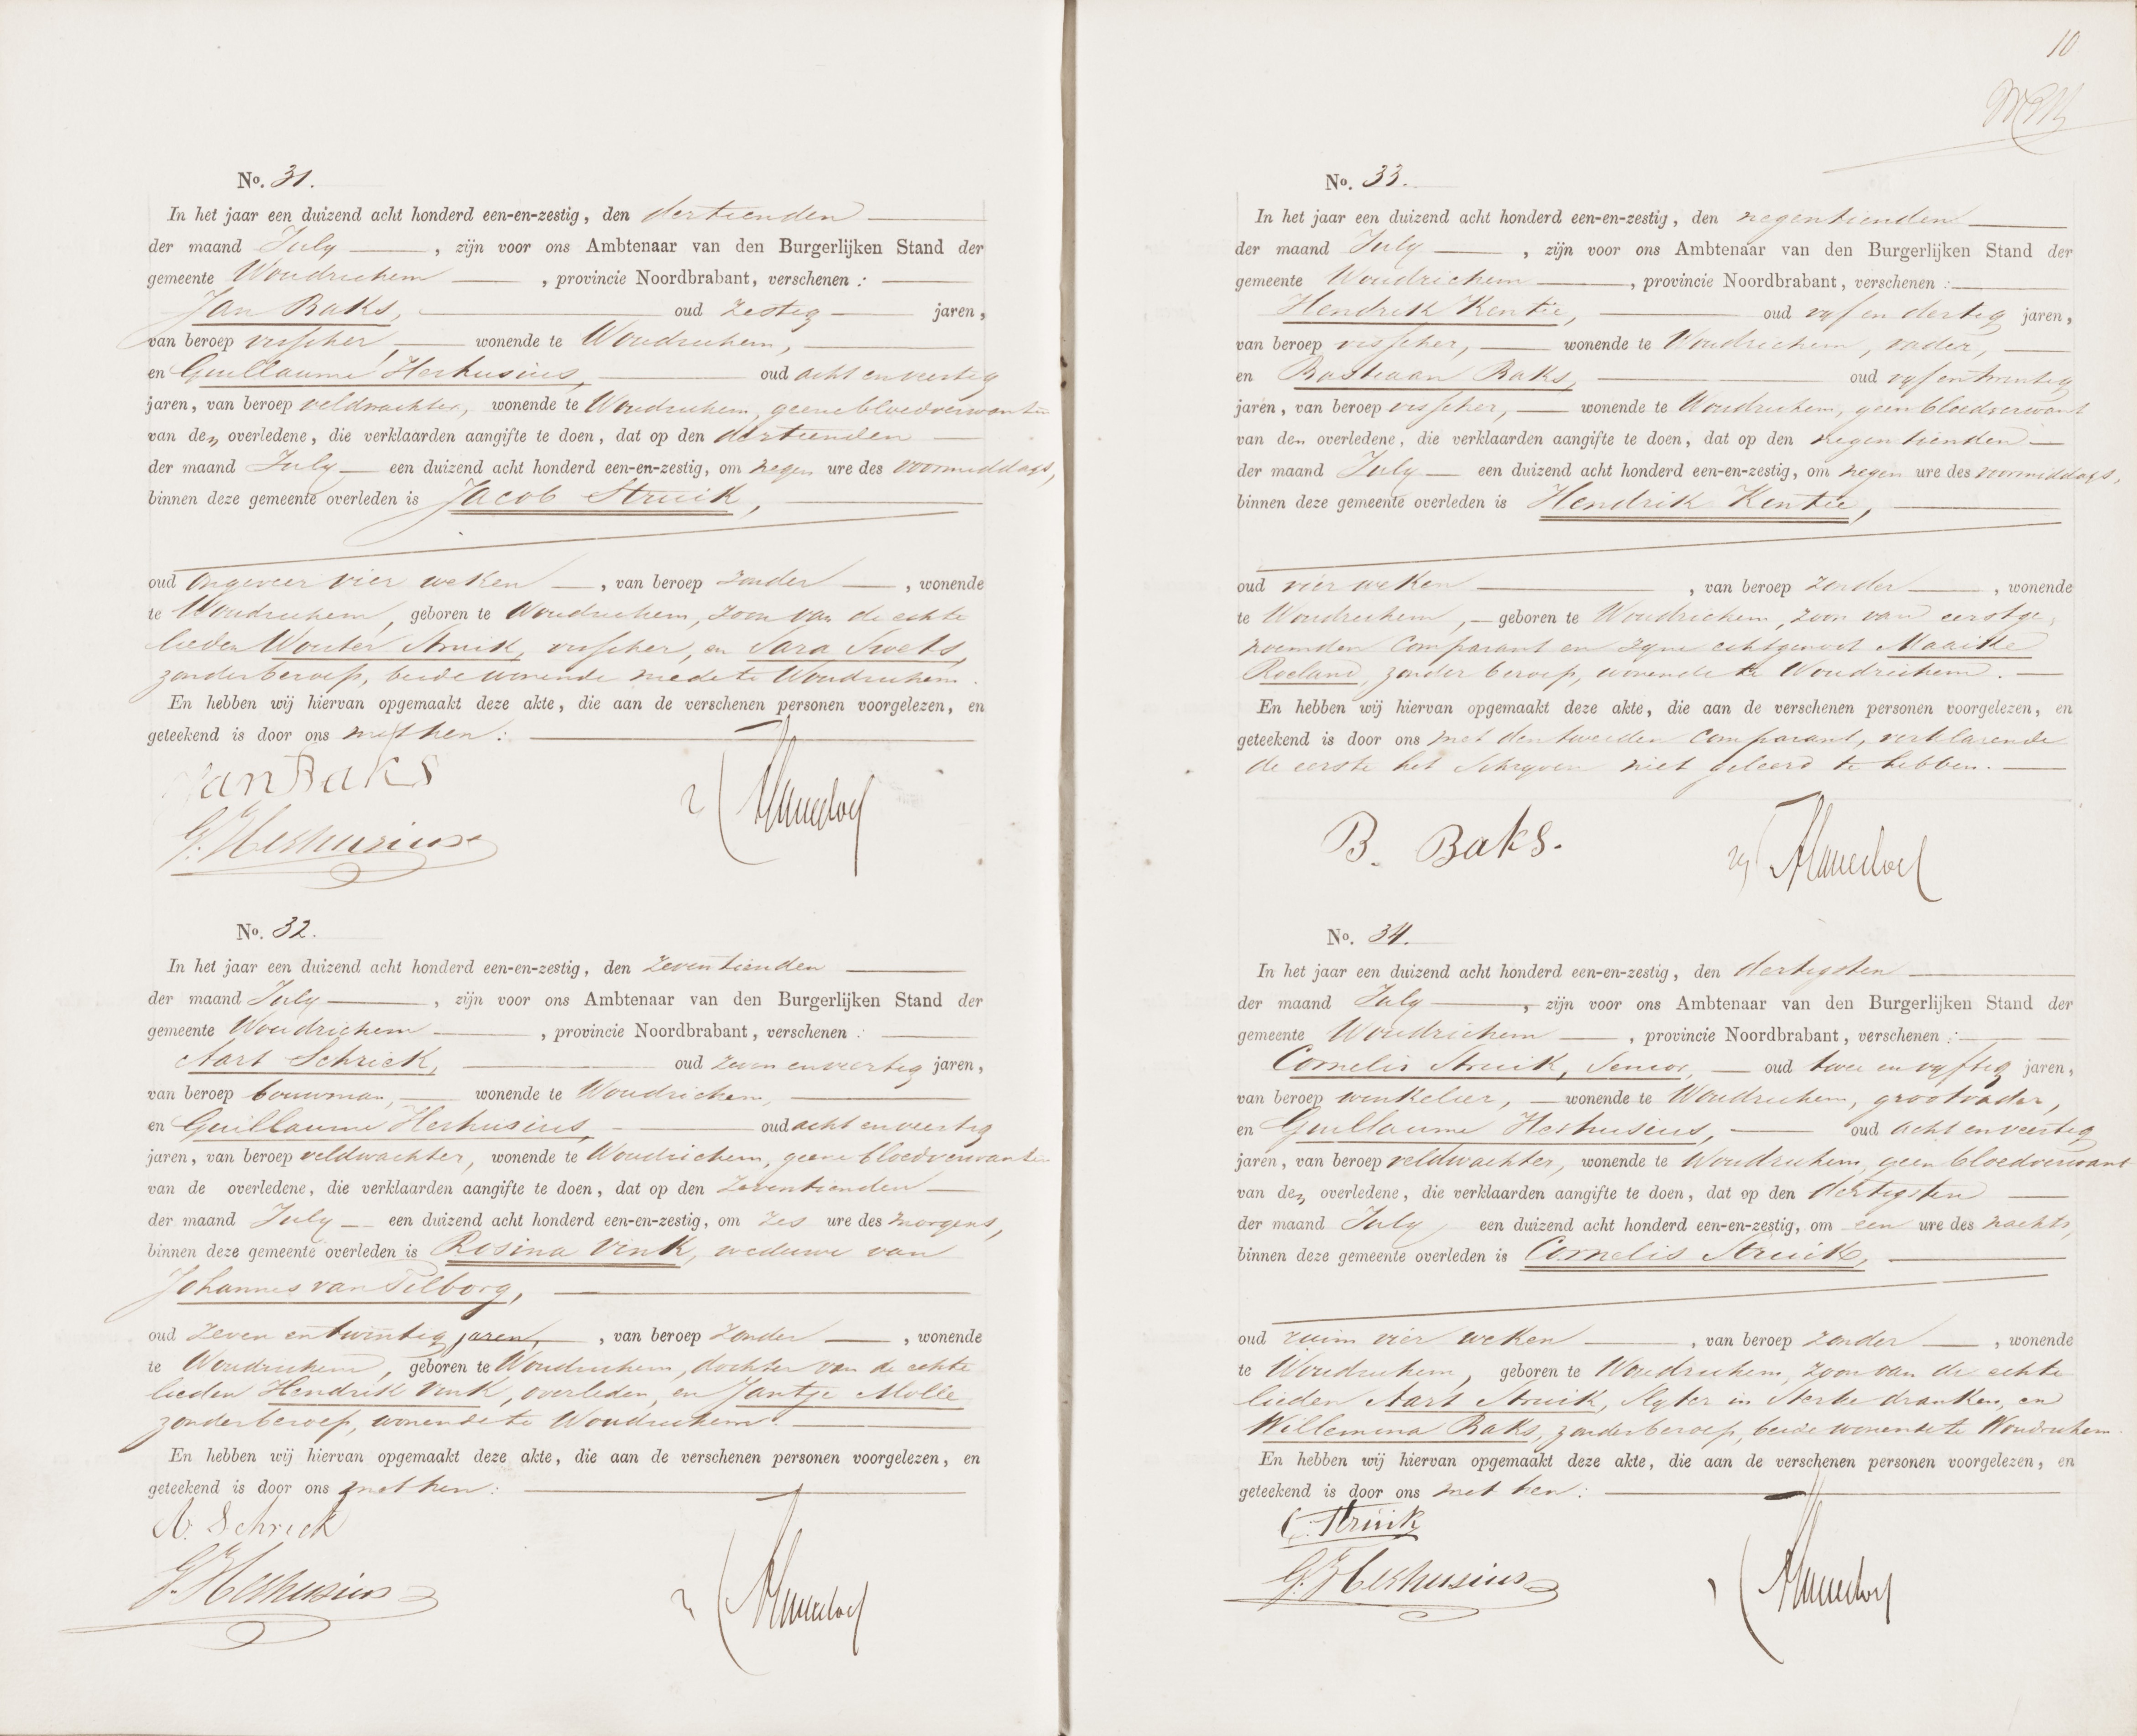 No. 31.
In het jaar een duizend acht honderd een-en-zestig, den dertienden
der maand July, zijn voor ons Ambtenaar van den Burgerlijken Stand der
gemeente Woudrichem, provincie Noordbrabant, verschenen :
Jan Baks, oud zestig jaren,
van beroep visscher, wonende te Woudrichem,
en Guillaume Herhusius, oud acht en veertig
jaren, van beroep veldwachter, wonende te Woudrichem, geene bloedverwanten
van den overledene, die verklaarden aangifte te doen, dat op den dertienden
der maand July een duizend acht honderd een-en-zestig, om negen ure des voormiddags,
binnen deze gemeente overleden is Jacob Struik,
oud ongeveer vier weken, van beroep zonder, wonende
te Woudrichem, geboren te Woudrichem, zoon van de echte
lieden Wouter Struik, visscher, en Sara Swets,
zonder beroep, beide wonende mede te Woudrichem.
En hebben wij hiervan opgemaakt deze akte, die aan de verschenen personen voorgelezen, en
geteekend is door ons met hen:
Jan Baks
G. Herhusius
No. 32.
In het jaar een duizend acht honderd een-en-zestig, den zeventienden
der maand July, zijn voor ons Ambtenaar van den Burgerlijken Stand der
gemeente Woudrichem, provincie Noordbrabant, verschenen :
Aart Schriek, oud zeven en veertig jaren,
van beroep bouwman, wonende te Woudrichem,
en Guillaume Herhusius, oud acht en veertig
jaren, van beroep veldwachter, wonende te Woudrichem, geene bloedverwanten
van de overledene, die verklaarden aangifte te doen, dat op den zeventienden
der maand July een duizend acht honderd een-en-zestig, om zes ure des morgens,
binnen deze gemeente overleden is Rosina Vink, weduwe van
Johannes van Tilborg,
oud zeven en twintig jaren, van beroep zonder, wonende
te Woudrichem, geboren te Woudrichem, dochter van de echte
lieden Hendrik Vink, overleden, en Jantje Molle
zonder beroep, wonende te Woudrichem.
En hebben wij hiervan opgemaakt deze akte, die aan de verschenen personen voorgelezen, en
geteekend is door ons met hen:
A. Schriek
G. Herhusius
10
No. 33.
In het jaar een duizend acht honderd een-en-zestig, den negentienden
der maand July, zijn voor ons Ambtenaar van den Burgerlijken Stand der
gemeente Woudrichem, provincie Noordbrabant, verschenen :
Hendrik Kentie, oud vyf en dertig jaren,
van beroep visscher, wonende te Woudrichem, vader,
en Bastiaan Baks, oud vyf en twintig
jaren, van beroep visscher, wonende te Woudrichem, geen bloedverwant
van den overledene, die verklaarden aangifte te doen, dat op den negentienden
der maand July een duizend acht honderd een-en-zestig, om negen ure des voormiddags,
binnen deze gemeente overleden is Hendrik Kentie,
oud vier weken, van beroep zonder, wonende
te Woudrichem, geboren te Woudrichem, zoon van eerstge-
noemden Comparant en zyne echtgenoot Maaike
Roeland, zonder beroep, wonende te Woudrichem.
En hebben wij hiervan opgemaakt deze akte, die aan de verschenen personen voorgelezen, en
geteekend is door ons met den tweeden Comparant, verklarende
de eerste het schryven niet geleerd te hebben.
B. Baks.
No. 34.
In het jaar een duizend acht honderd een-en-zestig, den dertigsten
der maand July, zijn voor ons Ambtenaar van den Burgerlijken Stand der
gemeente Woudrichem, provincie Noordbrabant, verschenen :
Cornelis Struik, Senior, oud twee en vyftig jaren,
van beroep winkelier, wonende te Woudrichem, grootvader,
en Guillaume Herhusius, oud acht en veertig
jaren, van beroep veldwachter, wonende te Woudrichem, geen bloedverwant
van den overledene, die verklaarden aangifte te doen, dat op den dertigsten
der maand July een duizend acht honderd een-en-zestig, om een ure des nachts,
binnen deze gemeente overleden is Cornelis Struik,
oud ruim vier weken, van beroep zonder, wonende
te Woudrichem, geboren te Woudrichem, zoon van de echte
lieden Aart Struik, slyter in sterke dranken, en
Willemina Baks, zonder beroep, beide wonende te Woudrichem.
En hebben wij hiervan opgemaakt deze akte, die aan de verschenen personen voorgelezen, en
geteekend is door ons met hen:
C. Struik
G. Herhusius